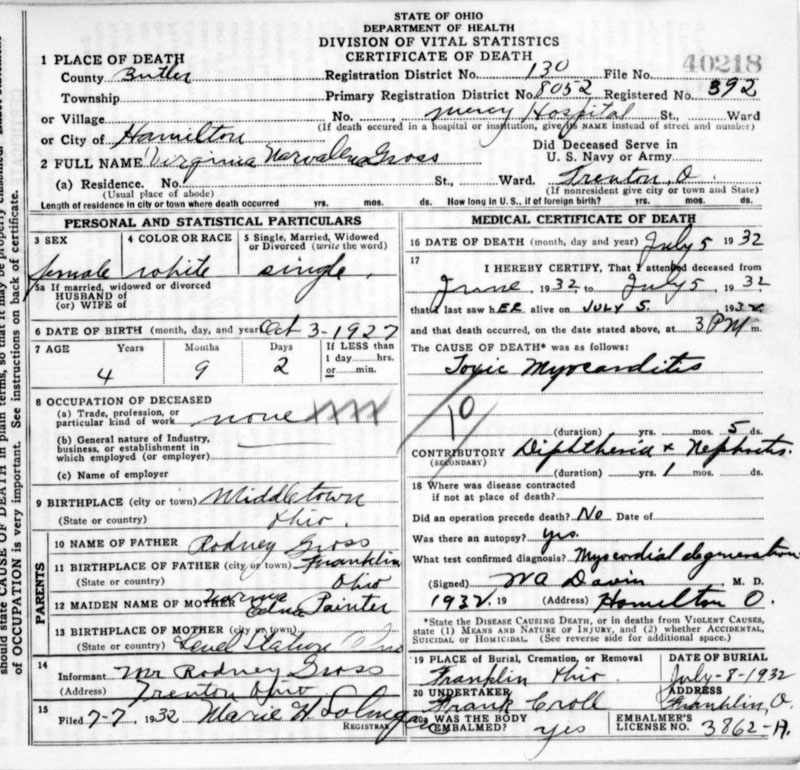 STATE OF OHIO
DEPARTMENT OF HEALTH
DIVISION OF VITAL STATISTICS
CERTIFICATE OF DEATH
1 PLACE OF DEATH
County Butler Registration District No. 130 File No. 40218
Township Primary Registration District No. 8052 Registered No. 392
or Village No. Mercy Hospital St., Ward
(If death occured in a hospital or institution, give its NAME instead of street and number)
or City of Hamilton
Did Deceased Serve in
U. S. Navy or Army
2 FULL NAME Virginia Gross
(a) Residence. No. St., Ward. Trenton, O.
(Usual place of abode) (If nonresident give city or town and State)
Length of residence in city or town where death occurred yrs. mos. ds. How long in U. S., if of foreign birth? yrs. mos. ds.
PERSONAL AND STATISTICAL PARTICULARS
3 SEX 4 COLOR OR RACE 5 Single, Married, Widowed
or Divorced (write the word)
female white single.
5a If married, widowed or divorced
HUSBAND of
(or) WIFE of
6 DATE OF BIRTH (month, day, and year) Oct 3-1927
7 AGE Years Months Days If LESS than
1 day....hrs.
or....min.
4 9 2
8 OCCUPATION OF DECEASED
(a) Trade, profession, or
particular kind of work none
(b) General nature of Industry,
business, or establishment in
which employed (or employer)
(c) Name of employer
9 BIRTHPLACE (city or town) Middletown
(State or country) Ohio.
PARENTS
10 NAME OF FATHER Rodney Gross
11 BIRTHPLACE OF FATHER (city or town) Franklin
(State or country) Ohio
12 MAIDEN NAME OF MOTHER Norma Edna Painter
13 BIRTHPLACE OF MOTHER (city or town)
(State or country) Station Ohio
14
Informant Mr Rodney Gross
(Address) Trenton Ohio
15
Filed 7-7 1932 Marie H.
REGISTRAR
MEDICAL CERTIFICATE OF DEATH
16 DATE OF DEATH (month, day and year) July 5 1932
17
I HEREBY CERTIFY, That I attended deceased from
June, 1932 to July 5, 1932
that I last saw her alive on JULY 5. 1932
and that death occurred, on the date stated above, at 3 PM m.
The CAUSE OF DEATH* was as follows:
Toxic Myocarditis
10
(duration) yrs. mos. 5 ds.
CONTRIBUTORY Diphtheria & Nephritis.
(SECONDARY)
(duration) yrs. 1 mos. ds.
18 Where was disease contracted
if not at place of death?
Did an operation precede death? No Date of
Was there an autopsy? yes.
What test confirmed diagnosis? Myocordial degeneration
(Signed) WA Davin M. D.
1932. 19 (Address) Hamilton O.
*State the DISEASE CAUSING DEATH, or in deaths from VIOLENT CAUSES,
state (1) MEANS AND NATURE OF INJURY, and (2) whether ACCIDENTAL,
SUICIDAL or HOMICIDAL. (See reverse side for additional space.)
19 PLACE of Burial, Cremation, or Removal DATE OF BURIAL
Franklin Ohio July-8-1932
20 UNDERTAKER ADDRESS
Frank Croll Franklin, O.
20a WAS THE BODY
EMBALMED? yes
EMBALMER'S
LICENSE NO. 3862-A.
should state CAUSE OF DEATH in plain terms, so that it may be properly classified.
of OCCUPATION is very important. See instructions on back of certificate.